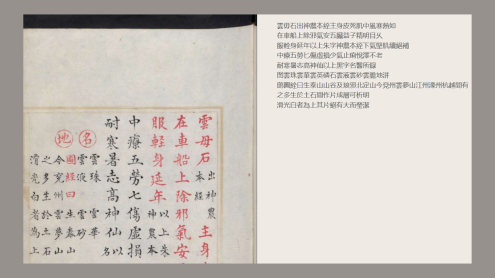 雲母石出神農本經主身皮死肌中風寒熱如
在車船上除邪氣安五臟益子精明目久
服輕身延年以上朱字神農本經下氣堅肌續絕補
中療五勞七傷虛損少氣止痢悅澤不老
耐寒暑志高神仙以上黑字名醫所錄
名雲珠雲華雲英磷石雲液雲砂雲膽地涿
圖經曰生泰山山谷及琅邪北定山今兗州雲夢山江州濠州杭越間有
之多生於土石間作片成層可析明
滑光白者為上其片絕有大而瑩潔
雲母石出神農本經主身
在車船上除邪氣安
服輕身延年以上朱神農本
中療五勞七傷虛損
耐寒暑志高神仙以名
名雲珠雲華雲液雲砂
地圖經曰生泰山
今兗州雲夢山
之多生於土石
滑光白者為上